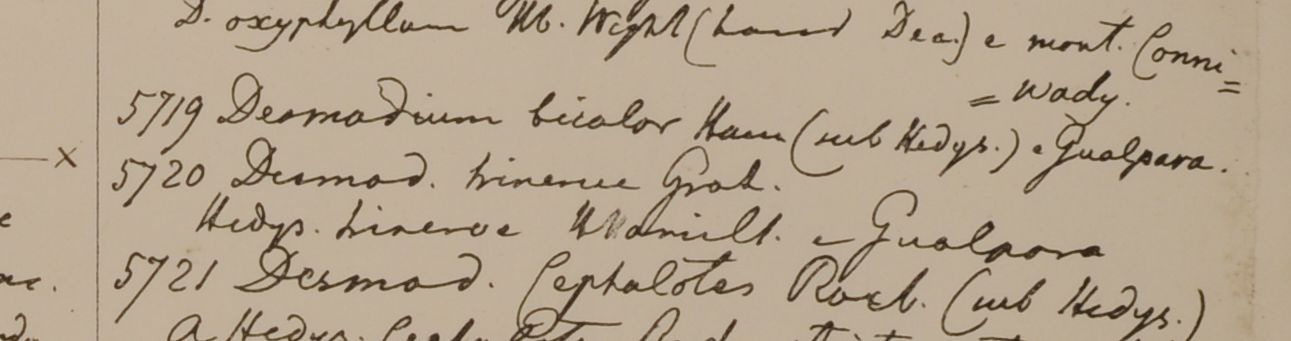 D. oxyphyllum Hb. Wight (haud Dec.) e mont. Conni=
=wady.
5719 Desmodium bicolor Ham (sub Hedys.) e Gualpara.
5720 Desmod. trinerve Grah.
Hedys. trinerve Hamilt. e Gualpara
5721 Desmod. Cephalotes Roxb. (sub Hedys.)